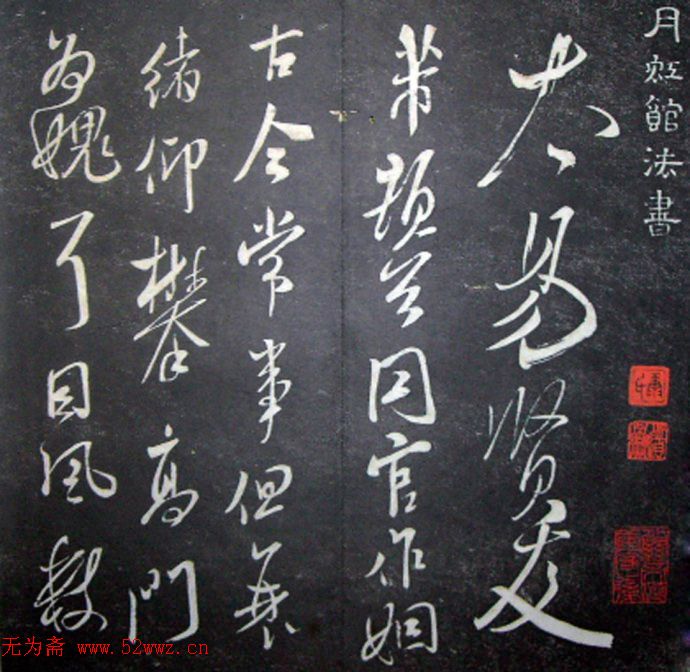 月虹館法書
太易賢友
芾頓首同官作姻
古今常事但
緒仰攀高門
為愧耳因風數
无为斋 www.52wwz.cn